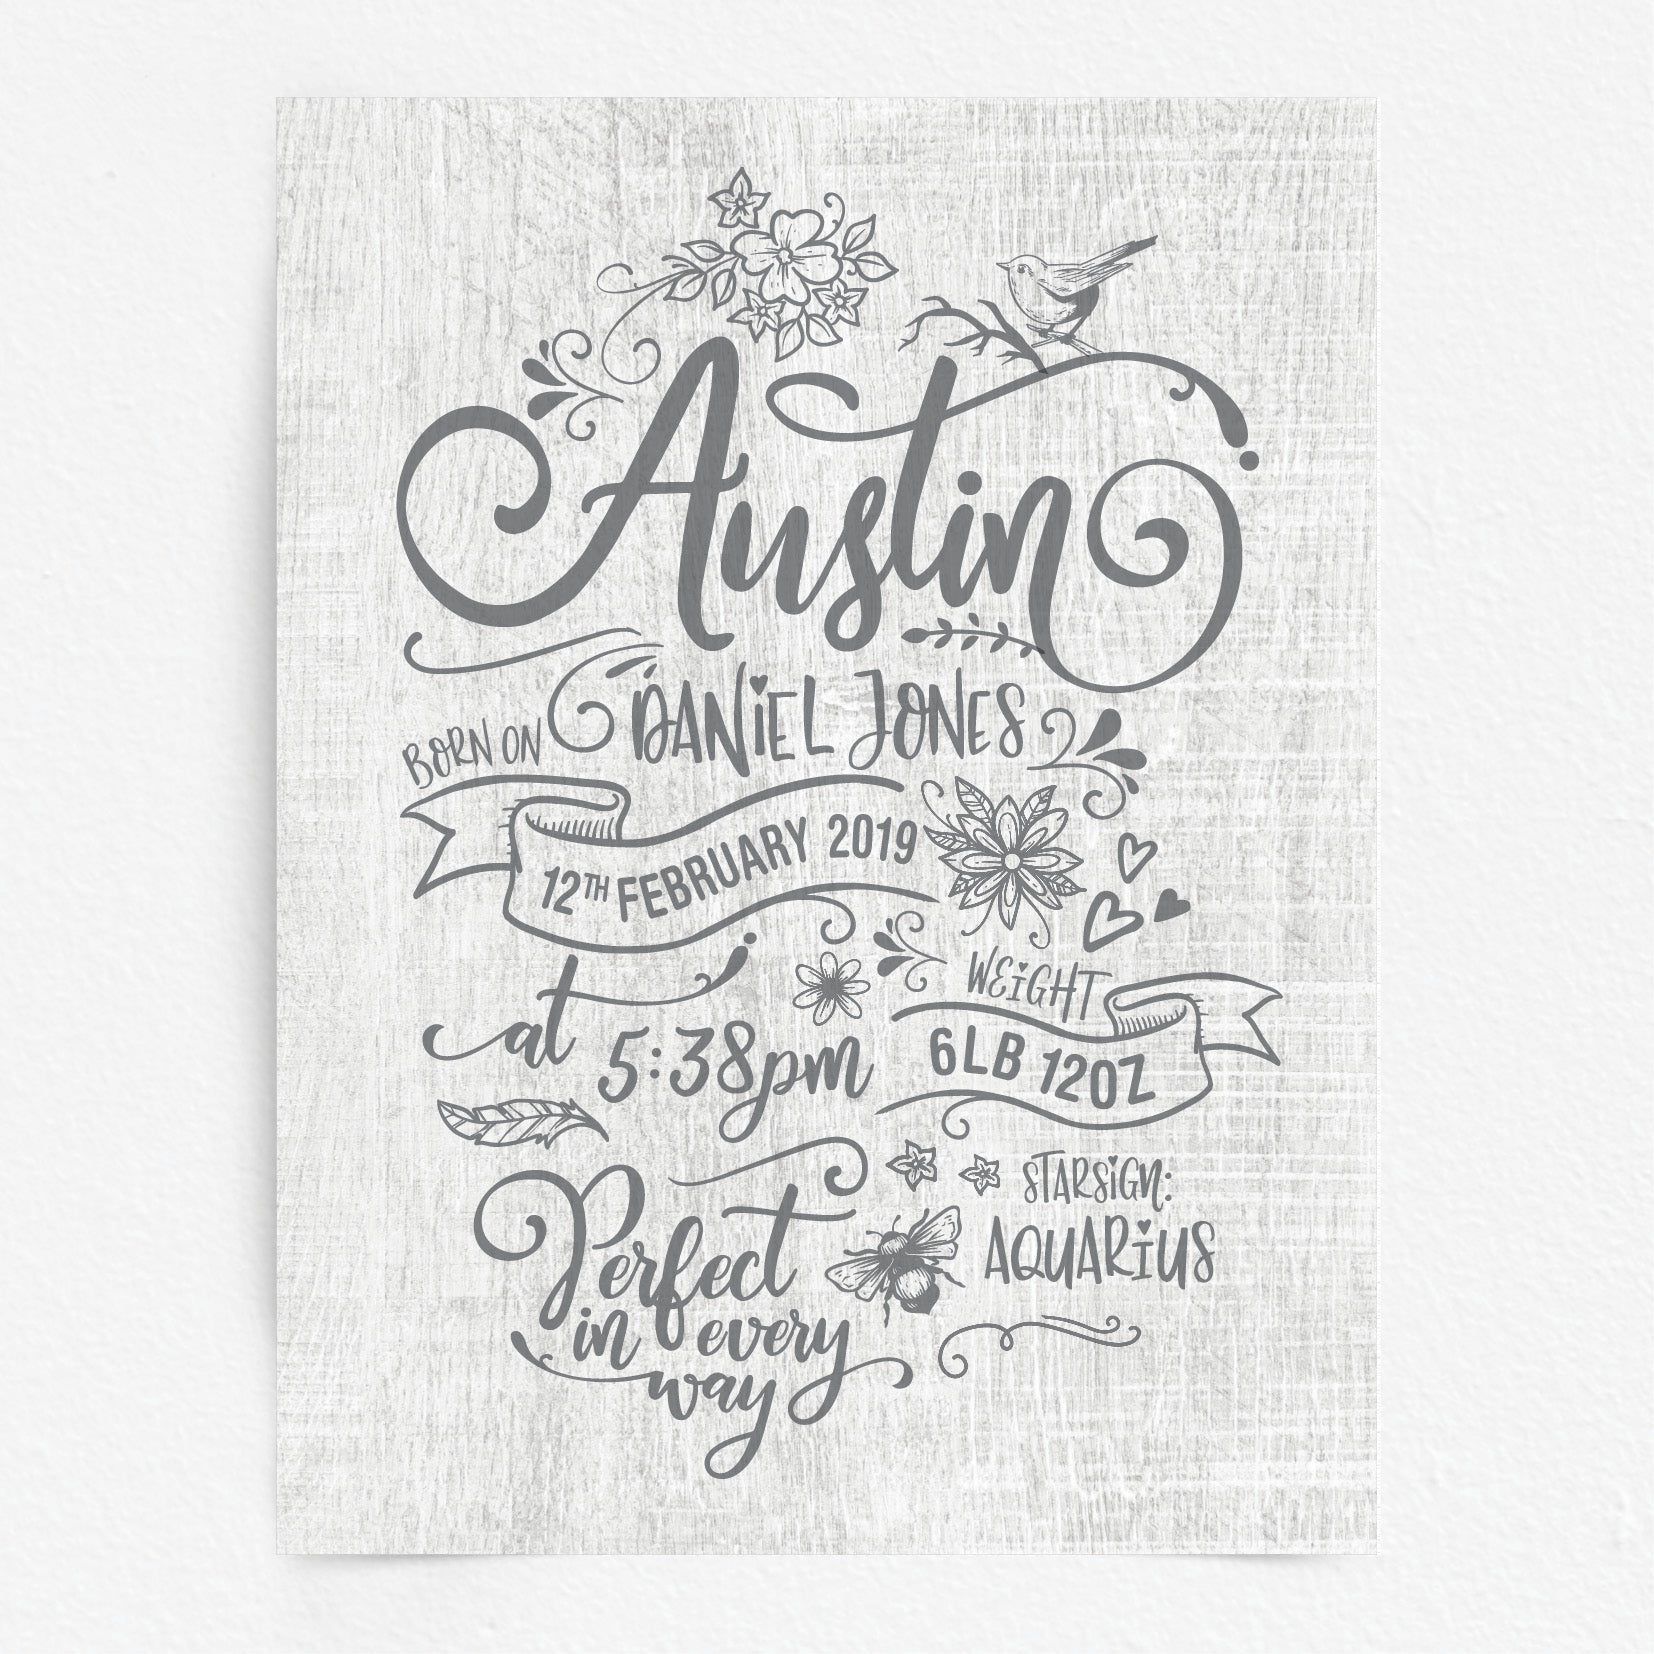 Austin
DANiEL JONES
BORN ON
12TH FEBRUARY 2019
at
5:38pm
WEiGHT
6LB 12OZ
STARSiGN:
AQUARiUS
Perfect
in every
way